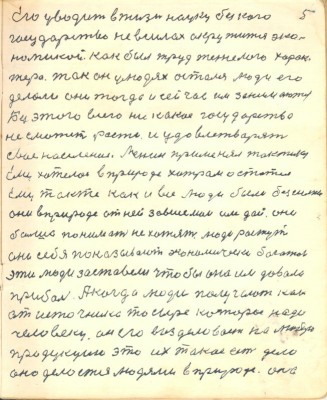 Его уводит в жизни науку бы кого 5
государство не в силах окружится эко-
номикой. как был труд тяжелого харак-
тера. так он у людях остался люди его
делали они тогда и сейчас им занимаются
Без этого всего ни какое государство
не сможит расти и удовлетварять
свое население. Ленин применял тактику
Ему хотелос в природе остатся
Ему также как и все люди были
они в природе от ней зависемы им дай. они
болша понимат не хотят люди растут
они себя показывают экономически
эти люди заставели чтобы она им довала
прибыл. А когда люди получают как
от источника то сыре которые надо
человеку. он его возделовает на
продукцию это их такое ест дело
оно делается людями в природе. она